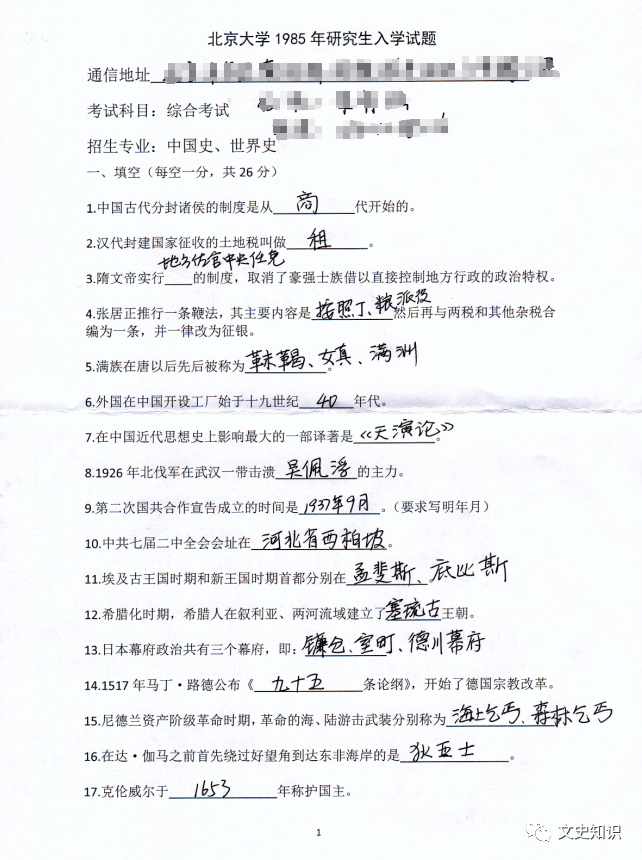 北京大学1985年研究生入学试题
通信地址
考试科目：综合考试
招生专业：中国史、世界史
一、填空（每空一分，共26分）
1.中国古代分封诸侯的制度是从商代开始的。
2.汉代封建国家征收的土地税叫做租。
地方佐官中央任免
3.隋文帝实行____的制度，取消了豪强士族借以直接控制地方行政的政治特权。
4.张居正推行一条鞭法，其主要内容是按照丁、粮派役然后再与两税和其他杂税合
编为一条，并一律改为征银。
5.满族在唐以后先后被称为靺鞨、女真、满洲。
6.外国在中国开设工厂始于十九世纪40年代。
7.在中国近代思想史上影响最大的一部译著是《天演论》。
8.1926年北伐军在武汉一带击溃吴佩浮的主力。
9.第二次国共合作宣告成立的时间是1937年9月。（要求写明年月）
10.中共七届二中全会会址在河北省西柏坡。
11.埃及古王国时期和新王国时期首都分别在孟斐斯、底比斯
12.希腊化时期，希腊人在叙利亚、两河流域建立了塞琉古王朝。
13.日本幕府政治共有三个幕府，即：镰仓、室町、德川幕府
14.1517年马丁·路德公布《九十五条论纲》，开始了德国宗教改革。
15.尼德兰资产阶级革命时期，革命的海、陆游击武装分别称为海上乞丐、森林乞丐
16.在达·伽马之前首先绕过好望角到达东非海岸的是狄亚士。
17.克伦威尔于1653年称护国主。
1
文史知识